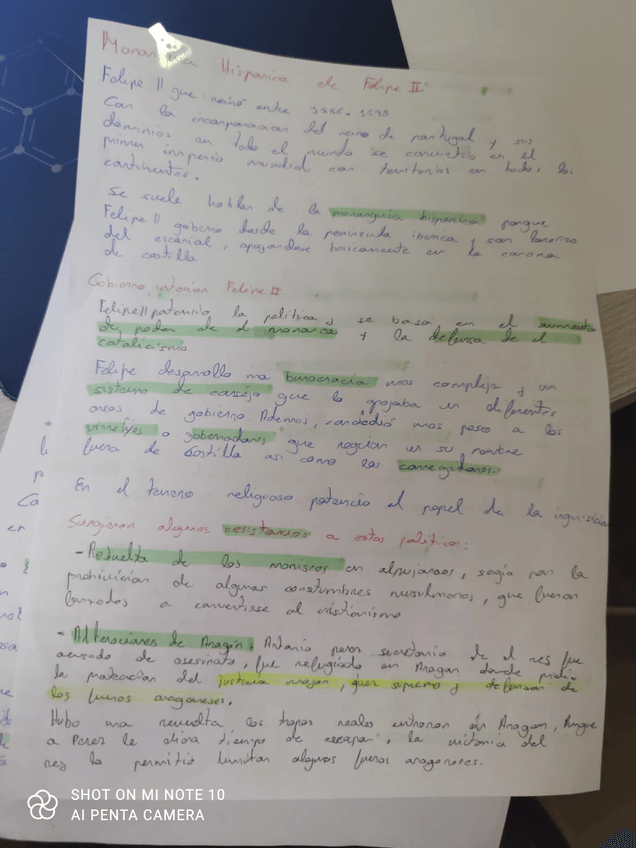 Monarquia Hispanica de Felipe II
Felipe II que reinó entre 1556-1598
Con la incorporacion del reino de portugal y sus
dominios en todo el mundo se convirtio en el
primer imperio mundial con territorios en todos los
continentes.
Se suele hablar de la monarquia hispanica porque
Felipe II goberno desde la peninsula iberica y san lorenzo
del escorial, apoyandose basicamente en la corona
de castilla
Gobierno interior Felipe II
Felipe II potencio la politica y se basa en el aumento
de poder de el monarca y la defensa de el
catolicismo
Felipe desarrollo una burocracia mas compleja y un
sistema de consejo que lo apoyaba en diferentes
areas de gobierno Ademas, concedió mas peso a los
virreyes o gobernadores que regian en su nombre
fuera de Castilla asi como los corregidores.
En el terreno religioso potencio el papel de la inquisicion
Surgieron algunas resistansas a estas politicas:
-Reduelta de los moriscos en alpujarras, segio por la
prohivicion de algunas constumbres musulmanas, que fueron
forzados a convertirse al cristianismo
- Alteraciones de Aragón, Antonio perez secretario de el rey fue
acusado de asesinato, fue refugiado en Aragon donde pidió
la proteccion del justicia mayor, juez supremo y defensor de
los fueros aragoneses.
Hubo una revuelta las tropas reales entraron en Aragon, Aunque
a Perez le dio tiempo de escapar, la victoria del
rey le permitio limitar algunos fueros aragoneses.
SHOT ON MI NOTE 10
AI PENTA CAMERA